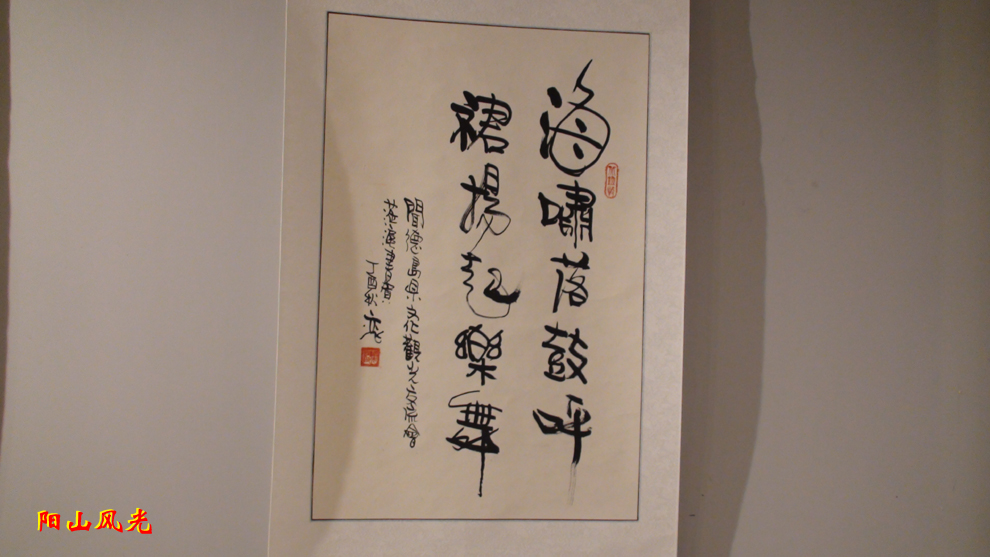 海嘯落鼓呼
裙揚起樂舞
德島県文化觀光交流會
書賀
丁酉秋
阳山风光